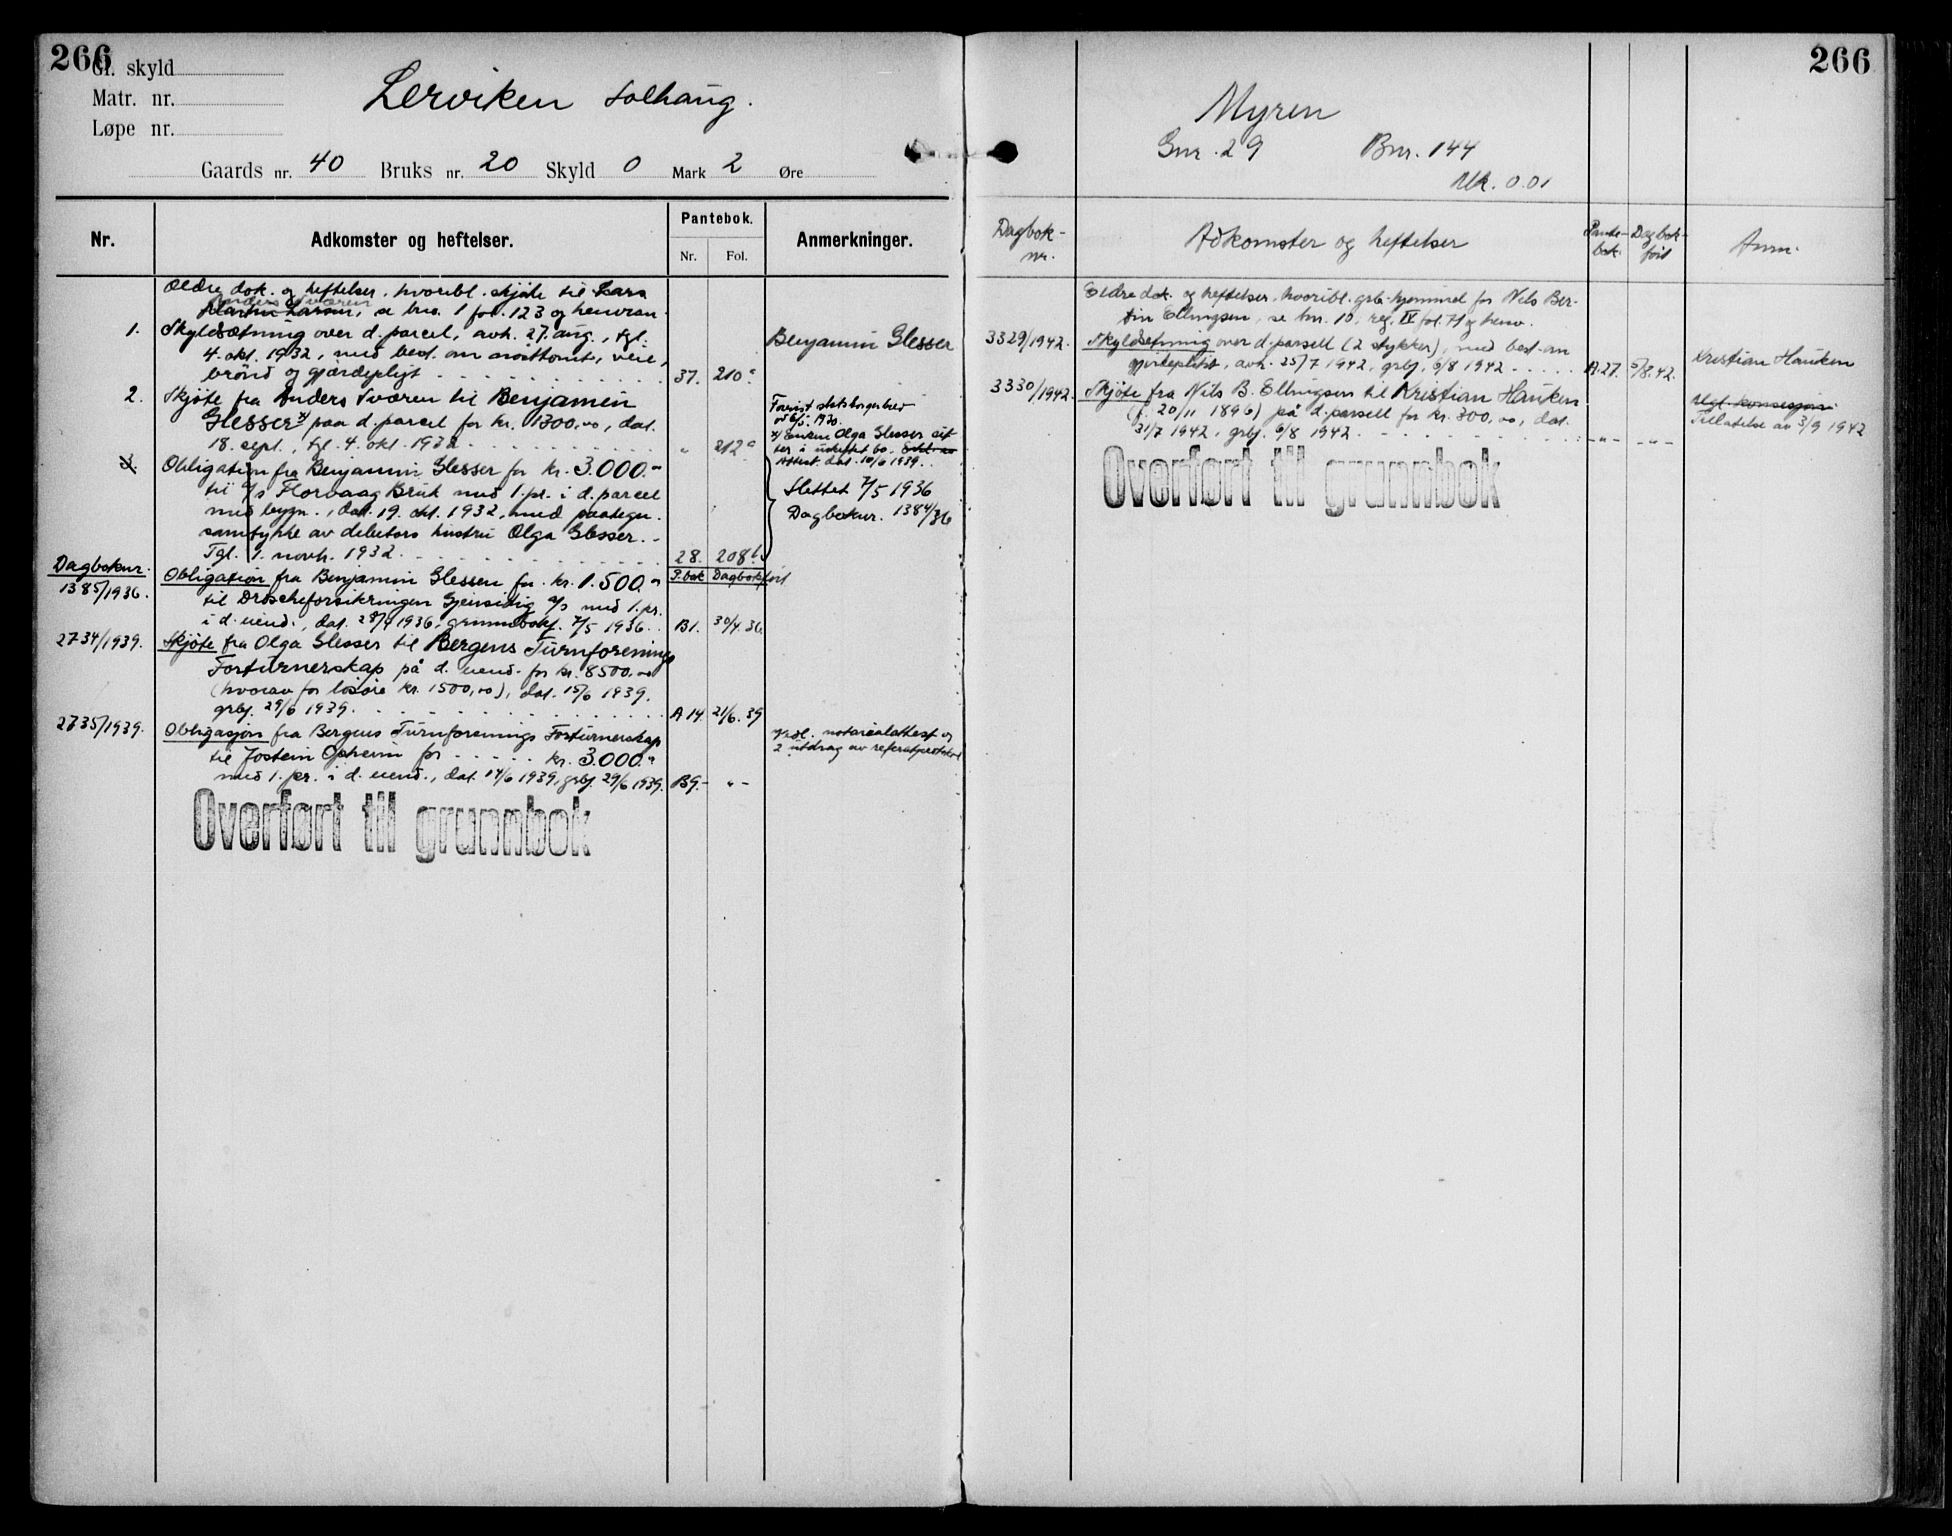 266
Gl. skyld
Matr. nr.
Løpe nr.
Lerviken Solhaug.
Gaards nr. 40 Bruks nr. 20 Skyld 0 Mark 2 Øre
Nr. Adkomster og heftelser. Pantebok. Anmerkninger.
Nr. Fol.
Ældre dok. og heftelser, hvoribl. skjøte til Lars
Anders Sværen
Martin Larsen, se bno. 1 fol. 123 og henvisn.
1. Skyldsætning over d. parcel, avh. 27. aug., tgl.
4. okt. 1932, med best. om nausttomt, veie,
brønd og gjærdepligt 37. 210a.
Benjamin Glesser
2. Skjøte fra Anders Sværen til Benjamin
Glesser x) paa d. parcel for kr. 1300,00, dat.
18. sept., tgl. 4. okt. 1932 " 212a
Forevist statsborgerbrev
av 6/5 1930.
x/ Enken Olga Glesser sit-
ter i uskiftet bo.
Attest dat. 10/6 1939.
3. Obligation fra Benjamin Glesser for kr. 3.000.-
til A/S Florvaag Bruk med 1. pr. i d. parcel
med bygn., dat. 19. okt. 1932, med paategn.
samtykke av debitors hustru Olga Glesser.
Tgl. 1. novb. 1932 28. 208b.
Slettet 7/5 1936
Dagboknr. 1384/36
Dagboknr. P.bok Dagbokført
1385/1936. Obligation fra Benjamin Glesser for kr. 1.500.-
til Droscheforsikringen Gjensidig A/S med 1. pr.
i d. eiend., dat. 28/4 1936, grunnbokf. 7/5 1936. B1. 30/4.36.
2734/1939. Skjøte fra Olga Glesser til Bergens Turnforenings
Forturnerskap på d. eiend. for kr. 8500,00
(hvorav for løsøre kr. 1500,00), dat. 15/6 1939,
grbf. 29/6 1939. A 14. 21/6.39
2735/1939. Obligasjon fra Bergens Turnforenings Forturnerskap
til Jostein Opheim for kr. 3.000.-
med 1. pr. i d. eiend., dat. 14/6 1939, grbf. 29/6 1939. B9. - " -
Vedl. notarialattest og
2 utdrag av referatprotokol
Overført til grunnbok
266
Myren
Gnr. 29 Bnr. 144
Mk. 0.01
Dagbok-
nr.
Adkomster og heftelser
Pante-
bok.
Dagbok-
ført
Anm.
Eldre dok. og heftelser, hvoribl. grb. hjemmel for Nils Ber-
tin Ellingsen, se bnr. 10, reg. IV fol. 71 og henv.
3329/1942. Skyldsetning over d. parsell (2 stykker), med best. om
gjerdeplikt, avh. 25/7 1942, grbf. 6/8 1942 A.27. 5/8.42.
Kristian Hauken
3330/1942. Skjøte fra Nils B. Ellingsen til Kristian Hauken
(f. 20/11 1896) på d. parsell for kr. 300,00, dat.
31/7 1942, grbf. 6/8 1942 - " - - " -
Utgl. konsesjon
Tillatelse av 3/9 1942
Overført til grunnbok